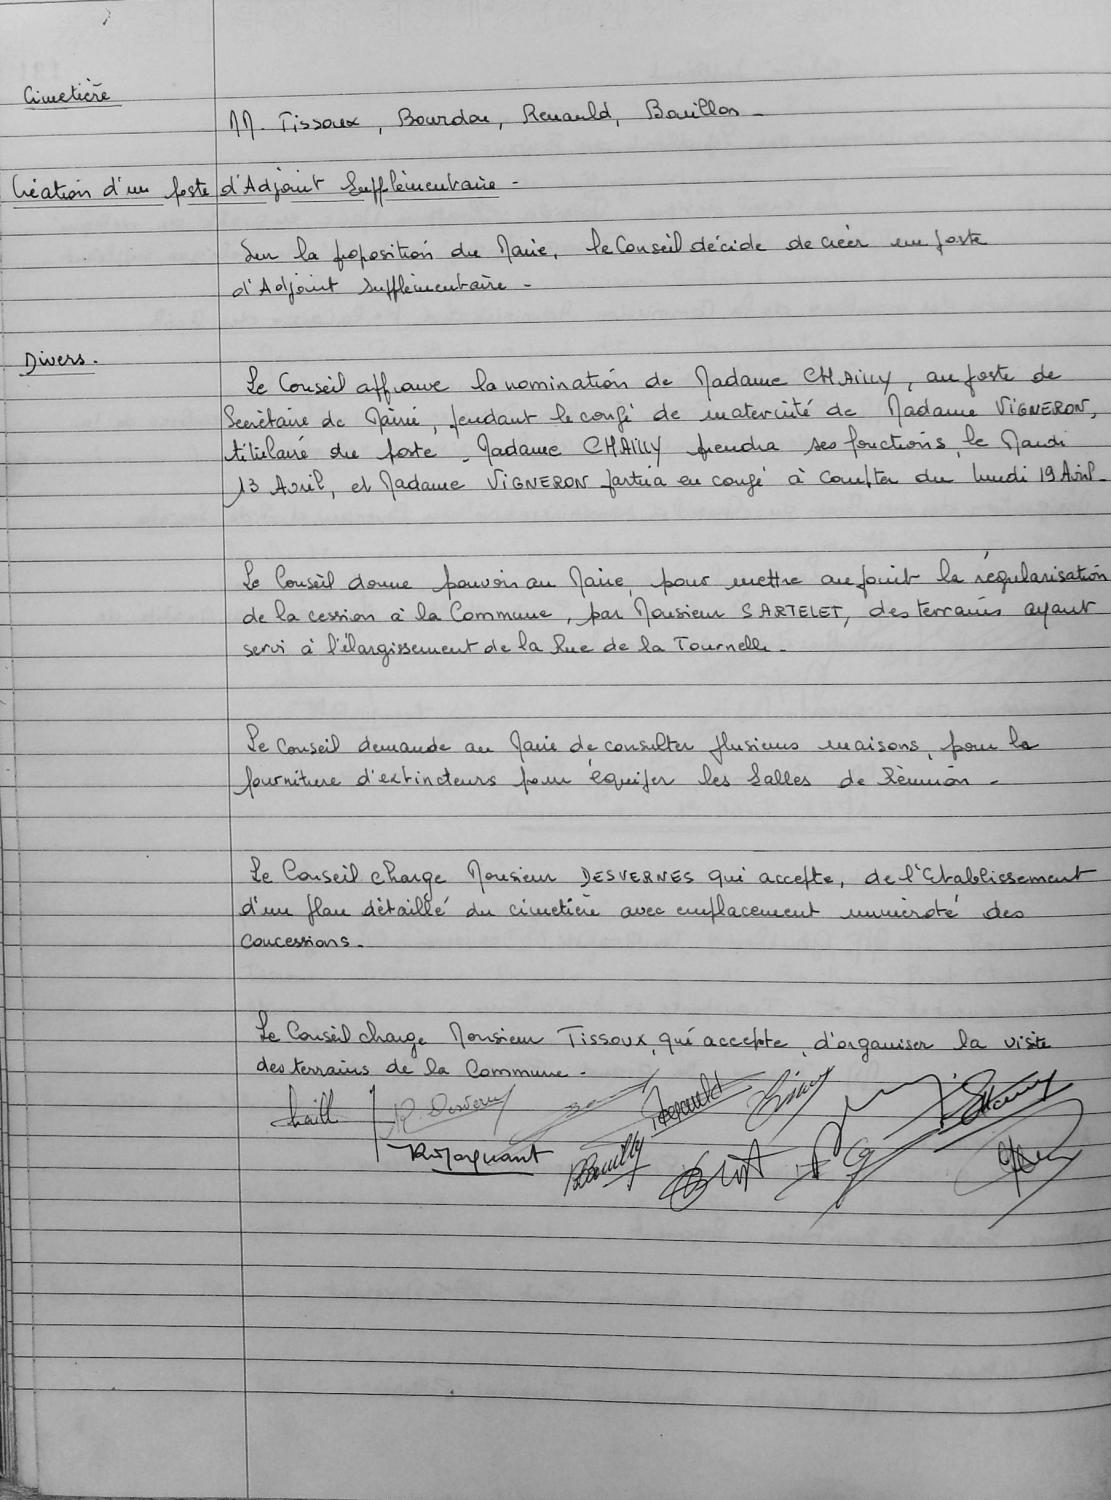 Cimetière
MM. Tissoux, Bourdon, Renauld, Bouillon -
Création d'un poste d'Adjoint Supplémentaire -
Sur la proposition du Maire, le Conseil décide de créer un poste
d'Adjoint supplémentaire -
Divers.
Le Conseil approuve la nomination de Madame CHAILLY, au poste de
Secrétaire de Mairie, pendant le congé de maternité de Madame VIGNERON,
titulaire du poste. Madame CHAILLY prendra ses fonctions, le Mardi
13 Avril, et Madame VIGNERON partira en congé à compter du lundi 19 Avril -
Le Conseil donne pouvoir au Maire, pour mettre au point la régularisation
de la cession à la Commune, par Monsieur SARTELET, des terrains ayant
servi à l'élargissement de la Rue de la Tournelle -
Le Conseil demande au Maire de consulter plusieurs maisons, pour la
fourniture d'extincteurs pour équiper les Salles de Réunion -
Le Conseil charge Monsieur DESVERNES qui accepte, de l'Etablissement
d'un plan détaillé du cimetière avec emplacement numéroté des
concessions -
Le Conseil charge Monsieur Tissoux, qui accepte, d'organiser la visite
des terrains de la Commune -
Renauld